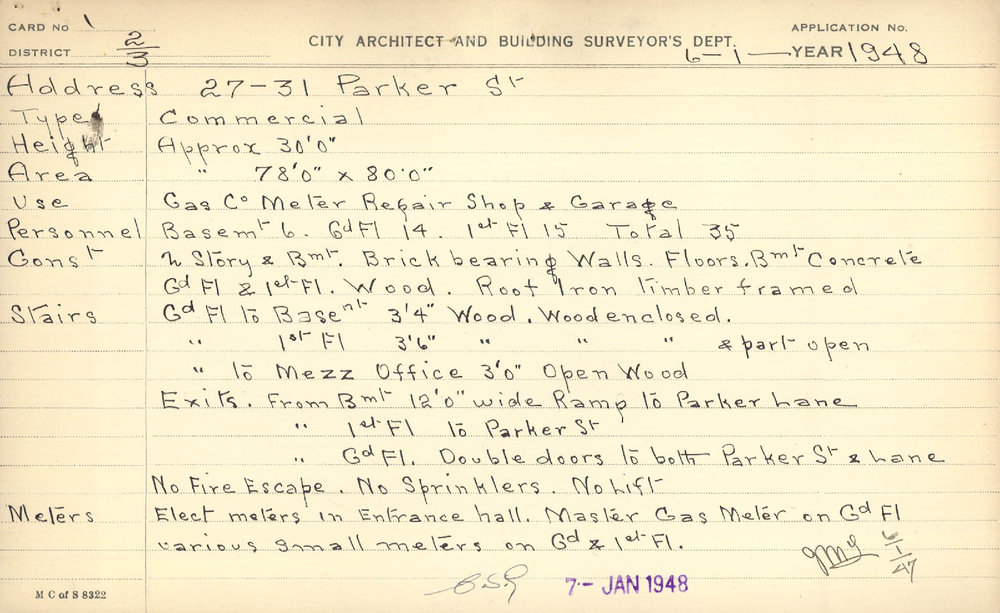 CARD No 1
APPLICATION No.
DISTRICT 2/3
CITY ARCHITECT AND BUILDING SURVEYOR'S DEPT.
6-1 — YEAR 1948
Address 27-31 Parker St
Type Commercial
Height Approx 30'0"
Area " 78'0" x 80'0"
Use Gas Co Meter Repair Shop & Garage
Personnel Basemt 6. Gd Fl 14. 1st Fl 15 Total 35
Const 2 Story & Bmt. Brick bearing Walls. Floors. Bmt Concrete
Gd Fl & 1st Fl. Wood. Roof Iron timber framed
Stairs Gd Fl to Basent 3'4" Wood. Wood enclosed.
" 1st Fl 3'6" " " " & part open
" to Mezz Office 3'0" Open Wood
Exits. From Bmt 12'0" wide Ramp to Parker Lane
" 1st Fl to Parker St
" Gd Fl. Double doors to both Parker St & Lane
No Fire Escape. No Sprinklers. No Lift
Meters Elect meters in Entrance hall. Master Gas Meter on Gd Fl
various small meters on Gd & 1st Fl.
6/1/47
7 - JAN 1948
M C of S 8322